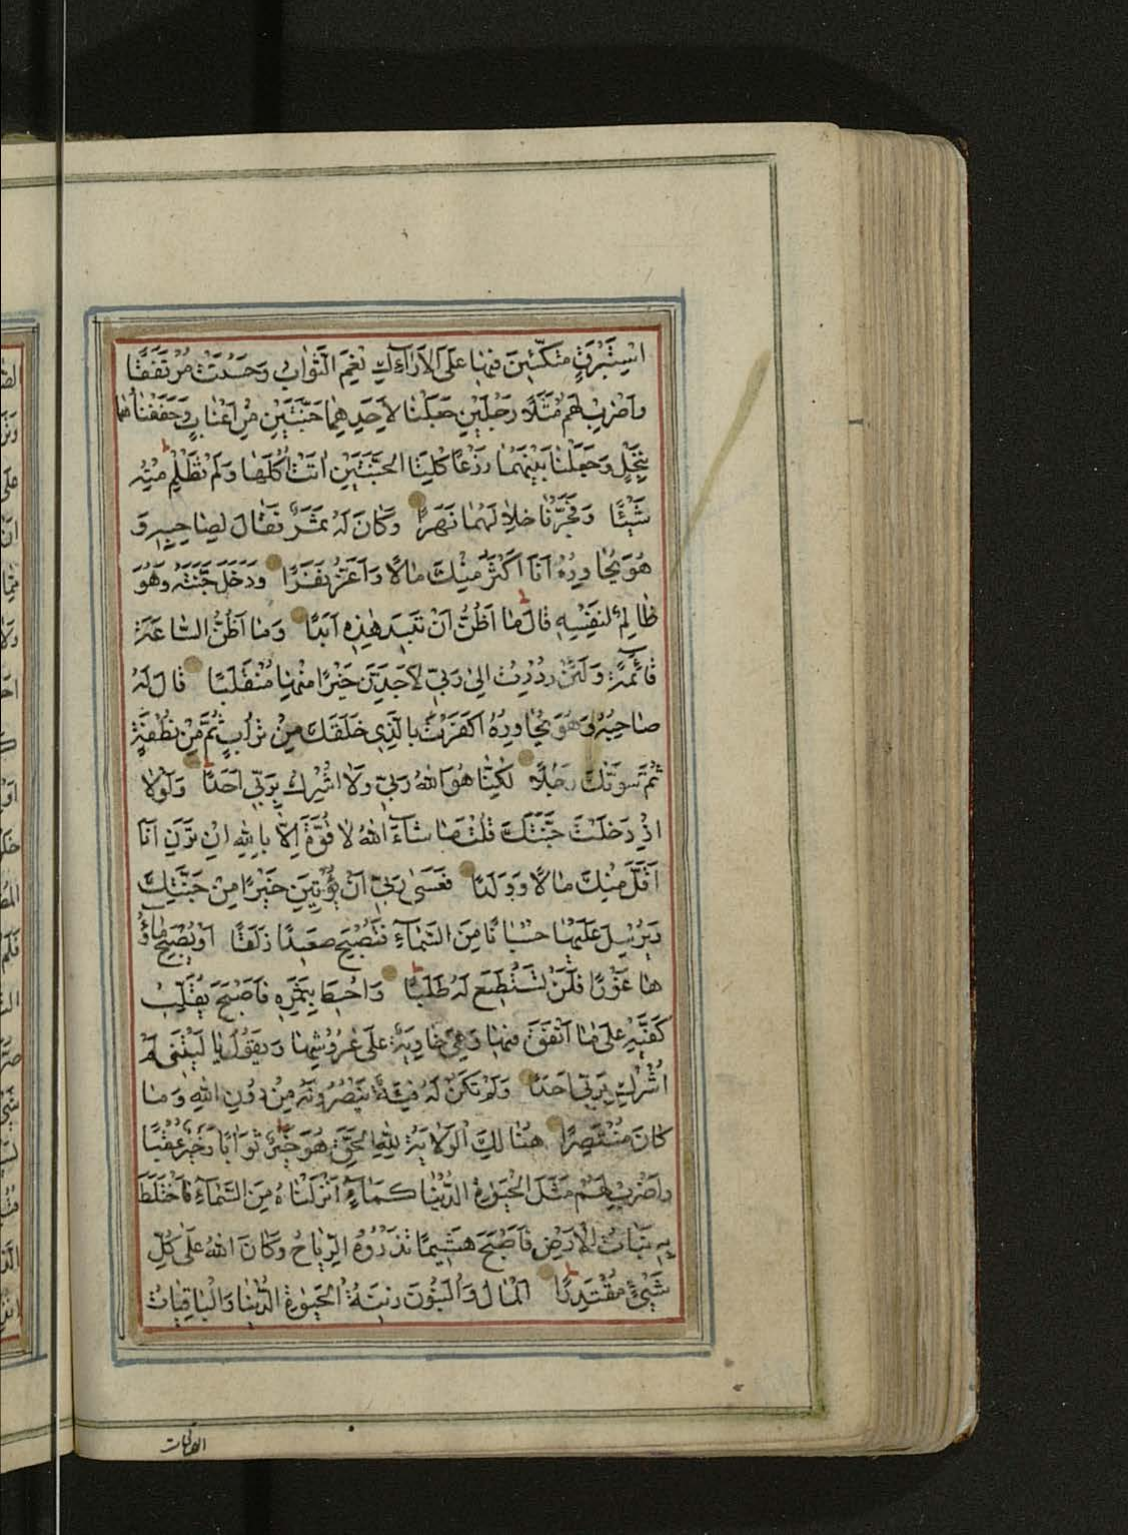 اِسْتَبْرَقٍ مُتَّكِئِينَ فِيهَا عَلَى الْاَرَائِكِ نِعْمَ الثَّوَابُ وَحَسُنَتْ مُرْتَفَقًا
وَاضْرِبْ لَهُمْ مَثَلًا رَجُلَيْنِ جَعَلْنَا لِاَحَدِهِمَا جَنَّتَيْنِ مِنْ اَعْنَابٍ وَحَفَفْنَاهُمَا
بِنَخْلٍ وَجَعَلْنَا بَيْنَهُمَا زَرْعًا كِلْتَا الْجَنَّتَيْنِ اٰتَتْ اُكُلَهَا وَلَمْ تَظْلِمْ مِنْهُ
شَيْئًا وَفَجَّرْنَا خِلَالَهُمَا نَهَرًا وَكَانَ لَهُ ثَمَرٌ فَقَالَ لِصَاحِبِهِ وَ
هُوَ يُحَاوِرُهُ اَنَا اَكْثَرُ مِنْكَ مَالًا وَاَعَزُّ نَفَرًا وَدَخَلَ جَنَّتَهُ وَهُوَ
ظَالِمٌ لِنَفْسِهِ قَالَ مَا اَظُنُّ اَنْ تَبِيدَ هٰذِهِ اَبَدًا وَمَا اَظُنُّ السَّاعَةَ
قَائِمَةً وَلَئِنْ رُدِدْتُ اِلٰى رَبِّي لَاَجِدَنَّ خَيْرًا مِنْهَا مُنْقَلَبًا قَالَ لَهُ
صَاحِبُهُ وَهُوَ يُحَاوِرُهُ اَكَفَرْتَ بِالَّذِي خَلَقَكَ مِنْ تُرَابٍ ثُمَّ مِنْ نُطْفَةٍ
ثُمَّ سَوّٰيكَ رَجُلًا لٰكِنَّا هُوَ اللهُ رَبِّي وَلَا اُشْرِكُ بِرَبِّي اَحَدًا وَلَوْلَا
اِذْ دَخَلْتَ جَنَّتَكَ قُلْتَ مَا شَاءَ اللهُ لَا قُوَّةَ اِلَّا بِاللهِ اِنْ تَرَنِ اَنَا
اَقَلَّ مِنْكَ مَالًا وَوَلَدًا فَعَسٰى رَبِّي اَنْ يُؤْتِيَنِ خَيْرًا مِنْ جَنَّتِكَ
وَيُرْسِلَ عَلَيْهَا حُسْبَانًا مِنَ السَّمَاءِ فَتُصْبِحَ صَعِيدًا زَلَقًا اَوْ يُصْبِحَ مَاؤُ
هَا غَوْرًا فَلَنْ تَسْتَطِيعَ لَهُ طَلَبًا وَاُحِيطَ بِثَمَرِهِ فَاَصْبَحَ يُقَلِّبُ
كَفَّيْهِ عَلٰى مَا اَنْفَقَ فِيهَا وَهِيَ خَاوِيَةٌ عَلٰى عُرُوشِهَا وَيَقُولُ يَا لَيْتَنِي لَمْ
اُشْرِكْ بِرَبِّي اَحَدًا وَلَمْ تَكُنْ لَهُ فِئَةٌ يَنْصُرُونَهُ مِنْ دُونِ اللهِ وَمَا
كَانَ مُنْتَصِرًا هُنَالِكَ الْوَلَايَةُ لِلّٰهِ الْحَقِّ هُوَ خَيْرٌ ثَوَابًا وَخَيْرٌ عُقْبًا
وَاضْرِبْ لَهُمْ مَثَلَ الْحَيٰوةِ الدُّنْيَا كَمَاءٍ اَنْزَلْنَاهُ مِنَ السَّمَاءِ فَاخْتَلَطَ
بِهِ نَبَاتُ الْاَرْضِ فَاَصْبَحَ هَشِيمًا تَذْرُوهُ الرِّيَاحُ وَكَانَ اللهُ عَلٰى كُلِّ
شَيْءٍ مُقْتَدِرًا اَلْمَالُ وَالْبَنُونَ زِينَةُ الْحَيٰوةِ الدُّنْيَا وَالْبَاقِيَاتُ
الصالحات